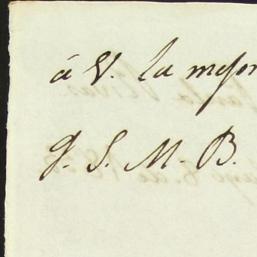 á V. la mejor
q. S. M. B.